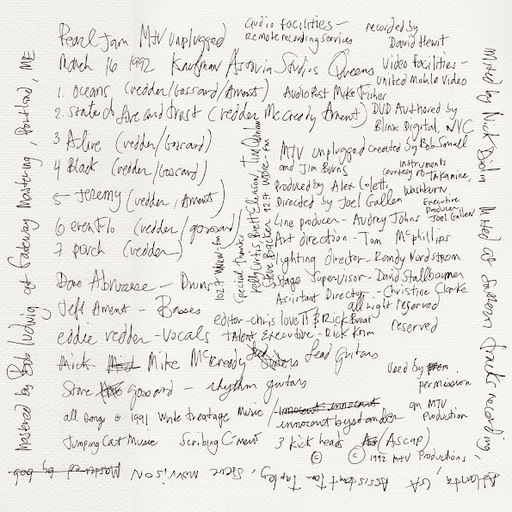 Pearl Jam MTV unplugged
March 16 1992 Kaufman Astoria Studios Queens
1. oceans (vedder/Gossard/Ament)
2. state of love and trust (vedder McCready Ament)
3 Alive (vedder/Gossard)
4 Black (vedder/Gossard)
5- Jeremy (vedder, Ament)
6 evenflo (vedder gossard)
7 porch (vedder)
Dave Abruzzese - Drums
Jeff Ament - Basses
eddie vedder - Vocals
Mick Mike McCready Lead guitars
Stone gossard - rhythm guitars
all songs © 1991 write treatage Music / innocent bystander
Jumping Cat Music Scribing C-ment 3 kick heads (Ascap)
© © 1992 MTV Productions
audio facilities -
remote recording services
recorded by
David Hewit
Video facilities -
united mobile video
Audio Post Mike Fisher
DVD Authored by
Blink Digital, NYC
MTV unplugged created by Bob Small
and Jim Burns
instruments
courtesy of Takamine,
Washburn
Produced by Alex Coletti,
Directed by Joel Gallen
Executive
Producer
Joel Gallen
Line producer - Audrey Johns
Art direction - Tom McPhillips
lighting Director - Randy Nordstrom
Stage Supervisor - David Stallbaumer
Assistant Director - Christine Clarke
all right reserved
reserved
editor - chris love II & Rick Broat
Talent Executive - Rick Krim
Used by
permission
an MTV
Production
Special Thanks
Kelly Curtis, Brett Eliason,
102.7 WNEW-fm
Mixed by Nick Didia
Mixed at Southern tracks recording,
Atlanta, GA, Assistant Tom Tapley, Steve Morrison
Mastered by Bob
Mastered by Bob Ludwig at Gateway Mastering, Portland, ME